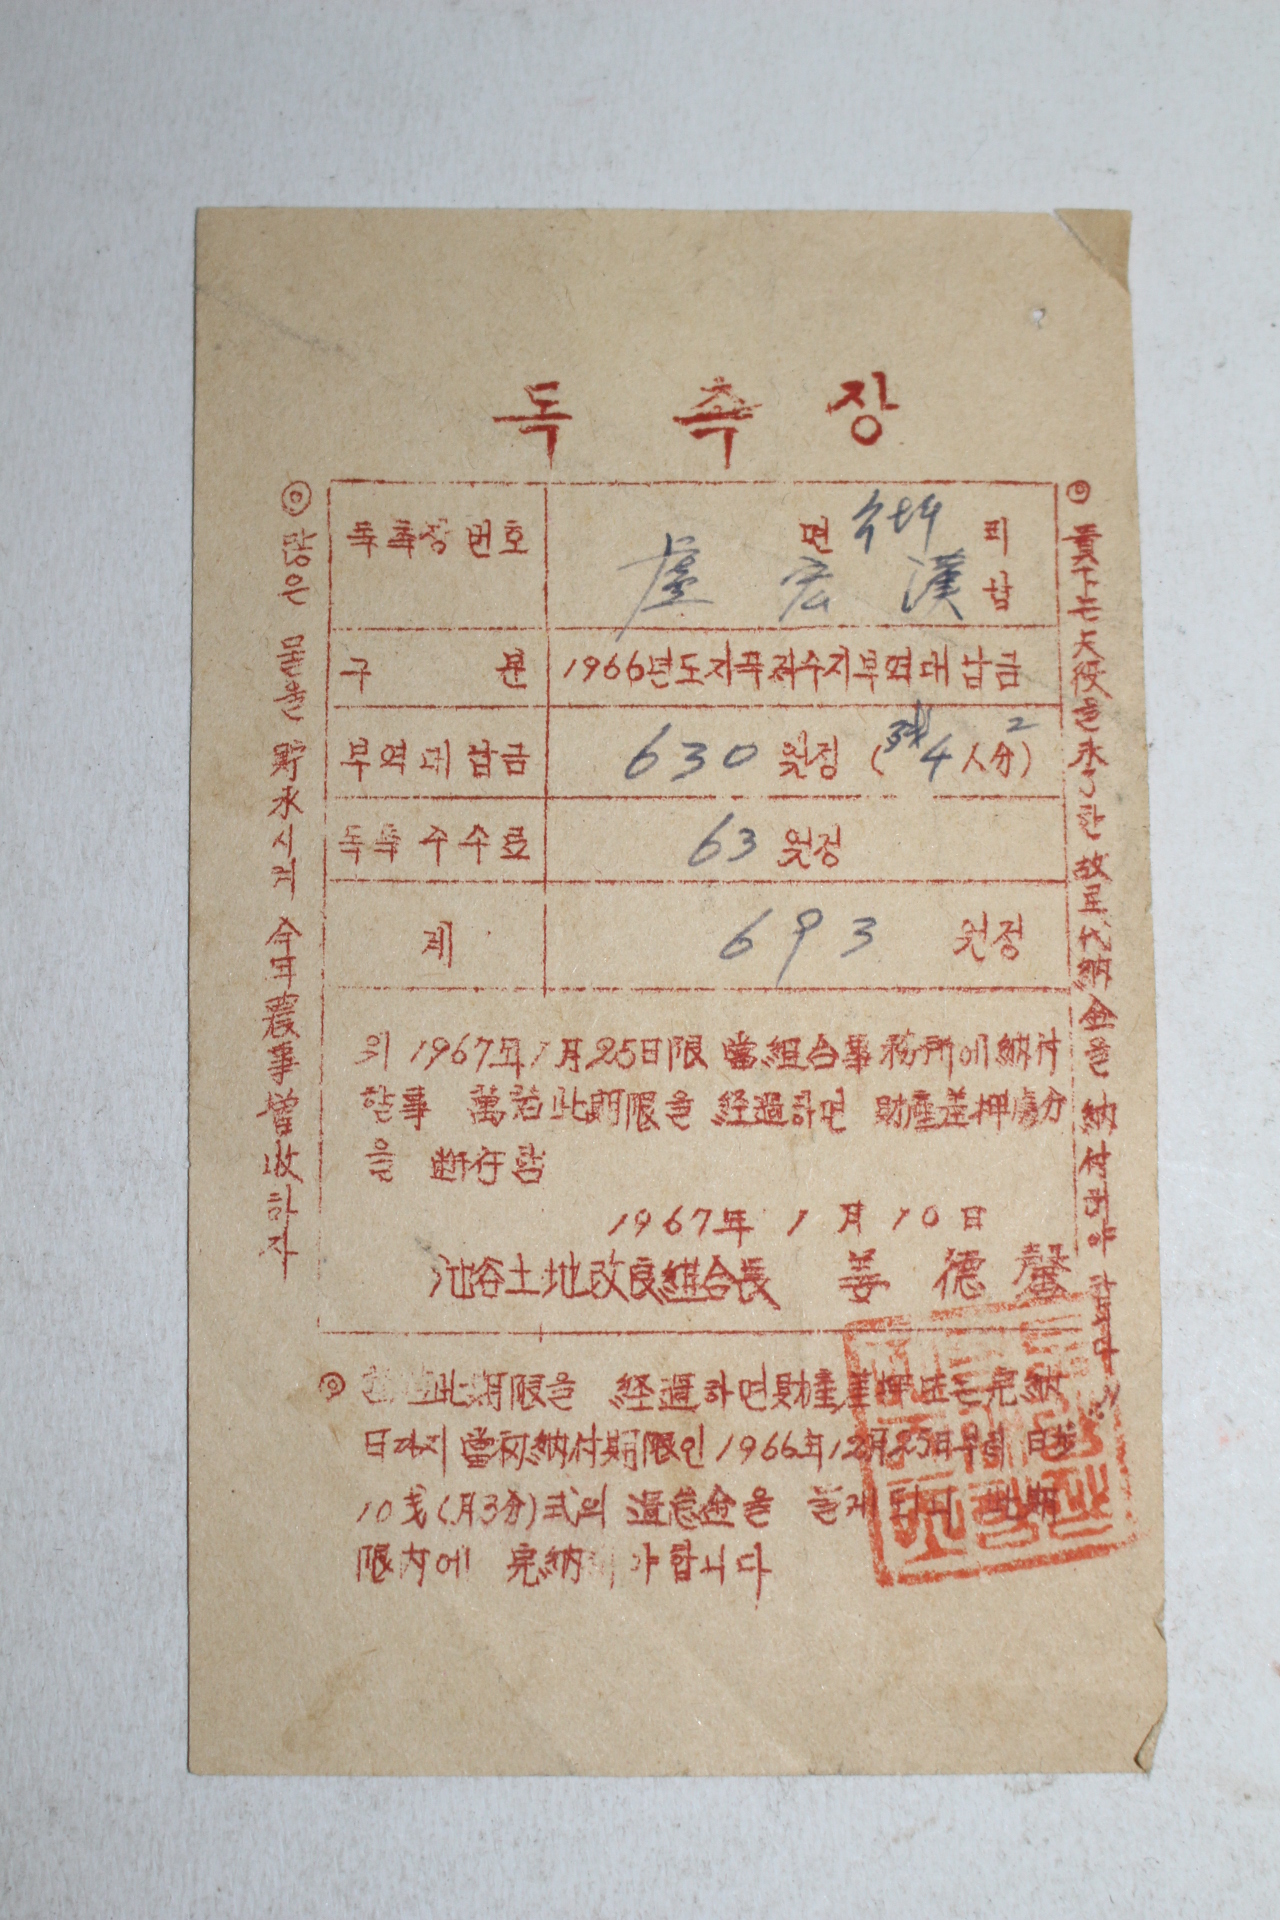 독촉장
독촉장번호 면 피
盧宏漢 납
구분 1966년도지곡저수지부역대납금
부역대납금 630원정 (4人分)
독촉수수료 63원정
계 693원정
위 1967年1月25日限 當組合事務所에 納付
할事 萬若此期限을 経過하면 財產差押處分
을 断行함
1967年 1月10日
池谷土地改良組合長 姜德馨
◎ 此期限을 経過하면 財產差押또는完納
日까지 當初納付期限인 1966年12月25日부터 日步
10戋(月3分)式의 過怠金을 물게되니 此期
限內에 完納 야합니다
◎ 많은 물을 貯水시켜 今年農事增收하자
◎ 貴下는 夫役을 未了한 故로 代納金을 納付해야 합니다